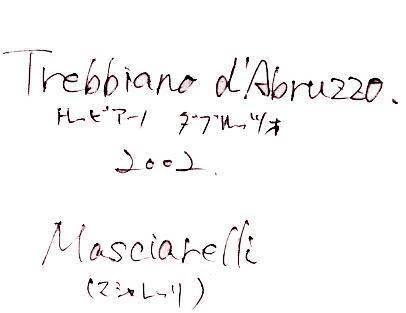 Trebbiano d'Abruzzo.
トレッビアーノ ダブルッツォ
2002.
Masciarelli
(マシャレッリ)